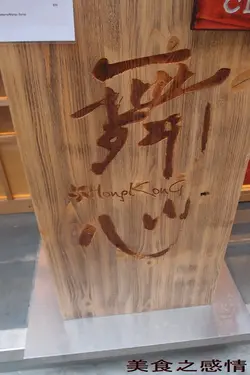 舞
HongKong
心
美食之感情